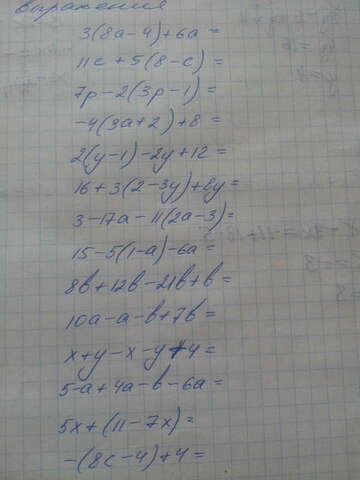 выражения
3(8a-4)+6a=
11c+5(8-c)=
7p-2(3p-1)=
-4(3a+2)+8=
2(y-1)-2y+12=
16+3(2-3y)+8y=
3-17a-11(2a-3)=
15-5(1-a)-6a=
8b+12b-21b+b=
10a-a-b+7b=
x+y-x-y+4=
5-a+4a-b-6a=
5x+(11-7x)=
-(8c-4)+4=